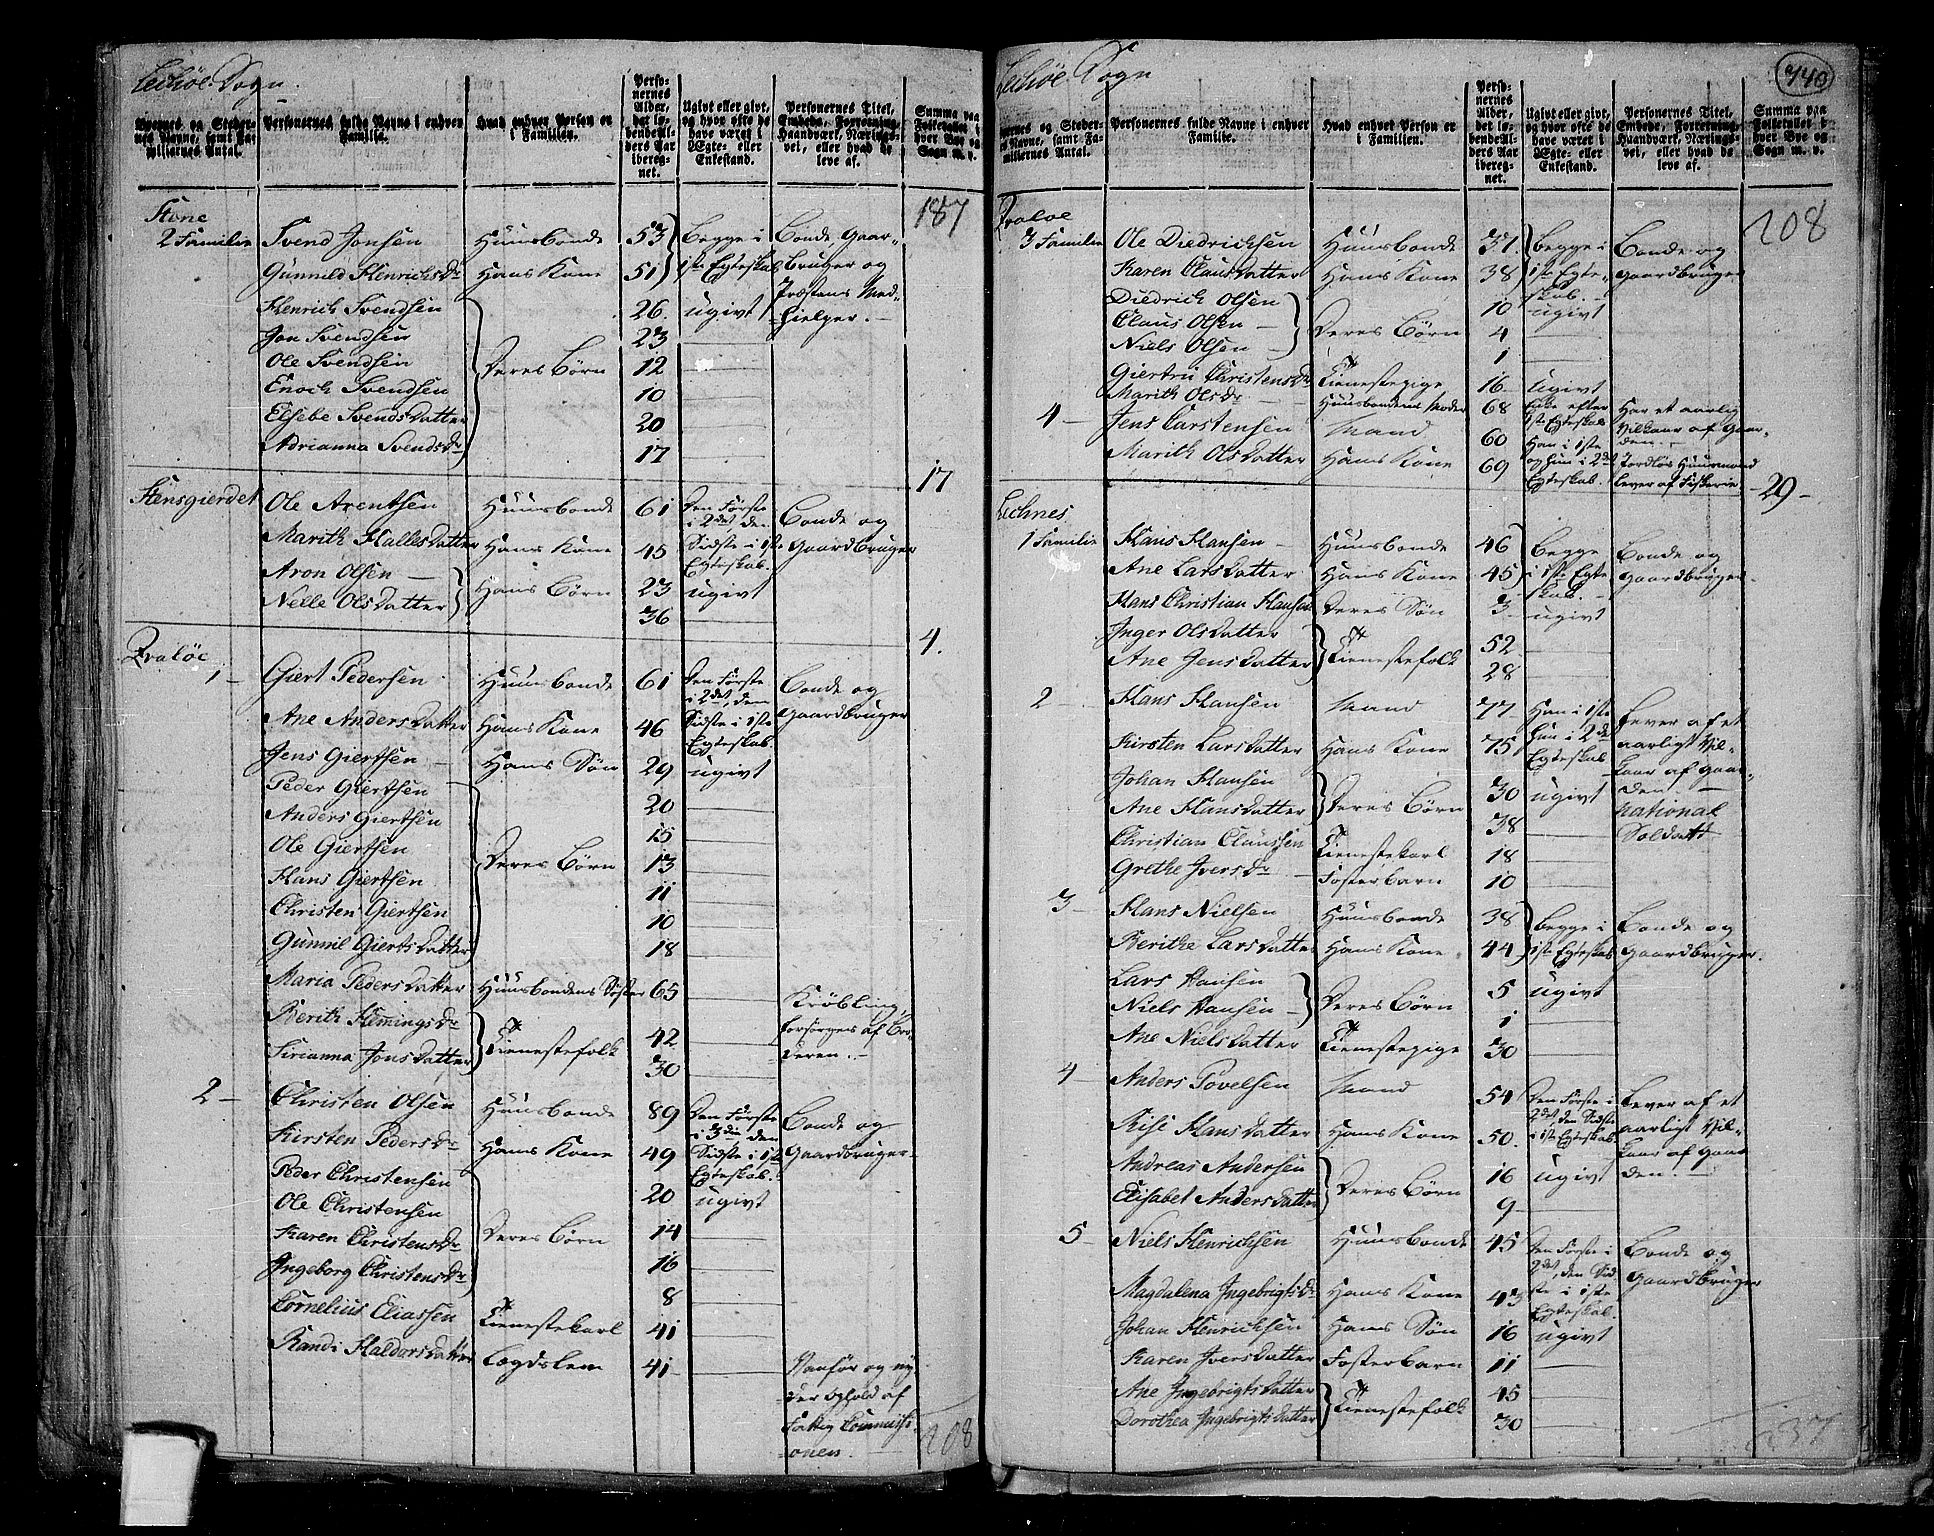 Lechöe Sogn.
Byernes og Stedernes Navne, samt Familiernes Antal.
Personernes fulde Navne i enhver Familie.
Hvad enhver Person er i Familien.
Personernes Alder, det løbende Alders Aar iberegnet.
Ugivt eller givt, og hvor ofte de have været i Ægte- eller Enkestand.
Personernes Titel, Embede, Forretning, Haandværk, Næringsvei, eller hvad de leve af.
Summa paa Folketallet i hver Bye og Sogn m. v.
187
Stene
2 Familie Svend Jonsen Huusbonde 53 Begge i 1ste Egteskab Bonde, Gaardbruger og Præstens Medhielper.
Gunnild Henrichsdr Hans Kone 51
Henrich Svendsen 26. ugivt
Jon Svendsen 23
Ole Svendsen Deres Børn 12
Enoch Svendsen 10
Elsebe Svendsdatter 20
Adrianna Svendsdr 17
17
Stensgierdet Ole Arentsen Huusbonde 61 Den Første i 2det, den Sidste i 1ste Egteskab. Bonde og Gaardbruger
Marith Hallesdatter Hans Kone 45
Aron Olsen Hans Børn 23 ugivt
Nelle Olsdatter 36
4.
Qvaløe
1 Giert Pedersen Huusbonde 61 Den Første i 2det, den Sidste i 1ste Egteskab. Bonde og Gaardbruger
Ane Andersdatter Hans Kone 46
Jens Giertsen Hans Søn 29 ugivt
Peder Giertsen 20
Anders Giertsen 15
Ole Giertsen Deres Børn 13
Hans Giertsen 11
Christen Giertsen 10
Gunnil Giertsdatter 18
Maria Pedersdatter Huusbondens Søster 65 Krøbling forsørges af Broderen.
Berith Flemingsdr Tienestefolk 42
Sirianna Jonsdatter 30
2 Christen Olsen Huusbonde 89 Den Første i 3die den Sidste i 1ste Egteskab. Bonde og Gaardbruger
Kirsten Pedersdr Hans Kone 49
Peder Christensen 20 ugivt
Ole Christensen 14
Karen Christensdr Deres Børn 16
Ingeborg Christensdr 8
Cornelius Eliassen Tienestekarl 41
Randi Haldorsdatter Lægdslem 41 Vanfør og nyder Ophold af Fattig Commissionen.
208
Lechöe Sogn
440
Byernes og Stedernes Navne, samt Familiernes Antal.
Personernes fulde Navne i enhver Familie.
Hvad enhver Person er i Familien.
Personernes Alder, det løbende Alders Aar iberegnet.
Ugivt eller givt, og hvor ofte de have været i Ægte- eller Enkestand.
Personernes Titel, Embede, Forretning, Haandværk, Næringsvei, eller hvad de leve af.
Summa paa Folketallet i hver Bye og Sogn m. v.
208
Qvaløe
3 Familie Ole Diedrichsen Huusbonde 37. begge i 1ste Egteskab. Bonde og Gaardbruger
Karen Clausdatter Hans Kone 38
Diedrich Olsen 10 ugivt
Claus Olsen Deres Børn 4
Niels Olsen 1
Giertru Christensdr Tienestepige 16 ugivt
Marith Olsdr Huusbondens Moder 68 Enke efter 1ste Egteskab Har et aarlig Vilkaar af Gaarden.
4 Jens Carstensen Mand 60 Han i 1ste og hun i 2det Egteskab. Jordløs Huusmand lever af Fiskerie
Marith Olsdatter Hans Kone 69
29
Lechnes
1 Familie Hans Hansen Huusbonde 46 begge i 1ste Egteskab. Bonde og Gaardbruger
Ane Larsdatter Hans Kone 45
Hans Christian Hansen Deres Søn 3 ugivt
Inger Olsdatter Tienestefolk 52
Ane Jensdatter 28
2 Hans Hansen Mand 77 Han i 1ste hun i 2det Egteskab Lever af et aarligt Vilkaar af Gaarden.
Kirsten Larsdatter Hans Kone 75
Johan Hansen Deres Børn 30 ugivt National Soldatt
Ane Hansdatter 38
Christian Claussen Tienestekarl 18
Grethe Iversdr Fosterbarn 10
3 Hans Nielsen Huusbonde 38 Begge i 1ste Egteskab Bonde og Gaardbruger.
Berithe Larsdatter Hans Kone 44
Lars Hansen Deres Børn 5 ugivt
Niels Hansen 1
Ane Nielsdatter Tienestepige 30
4 Anders Povelsen Mand 54 Den Første i 2det den Sidste i 1ste Egteskab. Lever af et aarligt Vilkaar af Gaarden.
Risi Hansdatter Hans Kone 50.
Andreas Andersen Deres Børn 16 ugivt
Elisabet Andersdatter 9
5 Niels Henrichsen Huusbonde 45 Den Første i 2det, den Sidste i 1ste Egteskab. Bonde og Gaardbruger
Magdalena Ingebrigtsdr Hans Kone 43
Johan Henrichsen Hans Søn 16 ugivt
Karen Iversdatter Fosterbarn 11
Ane Ingebrigtsdatter Tienestefolk 45
Dorothea Ingebrigtsdatter 30
237